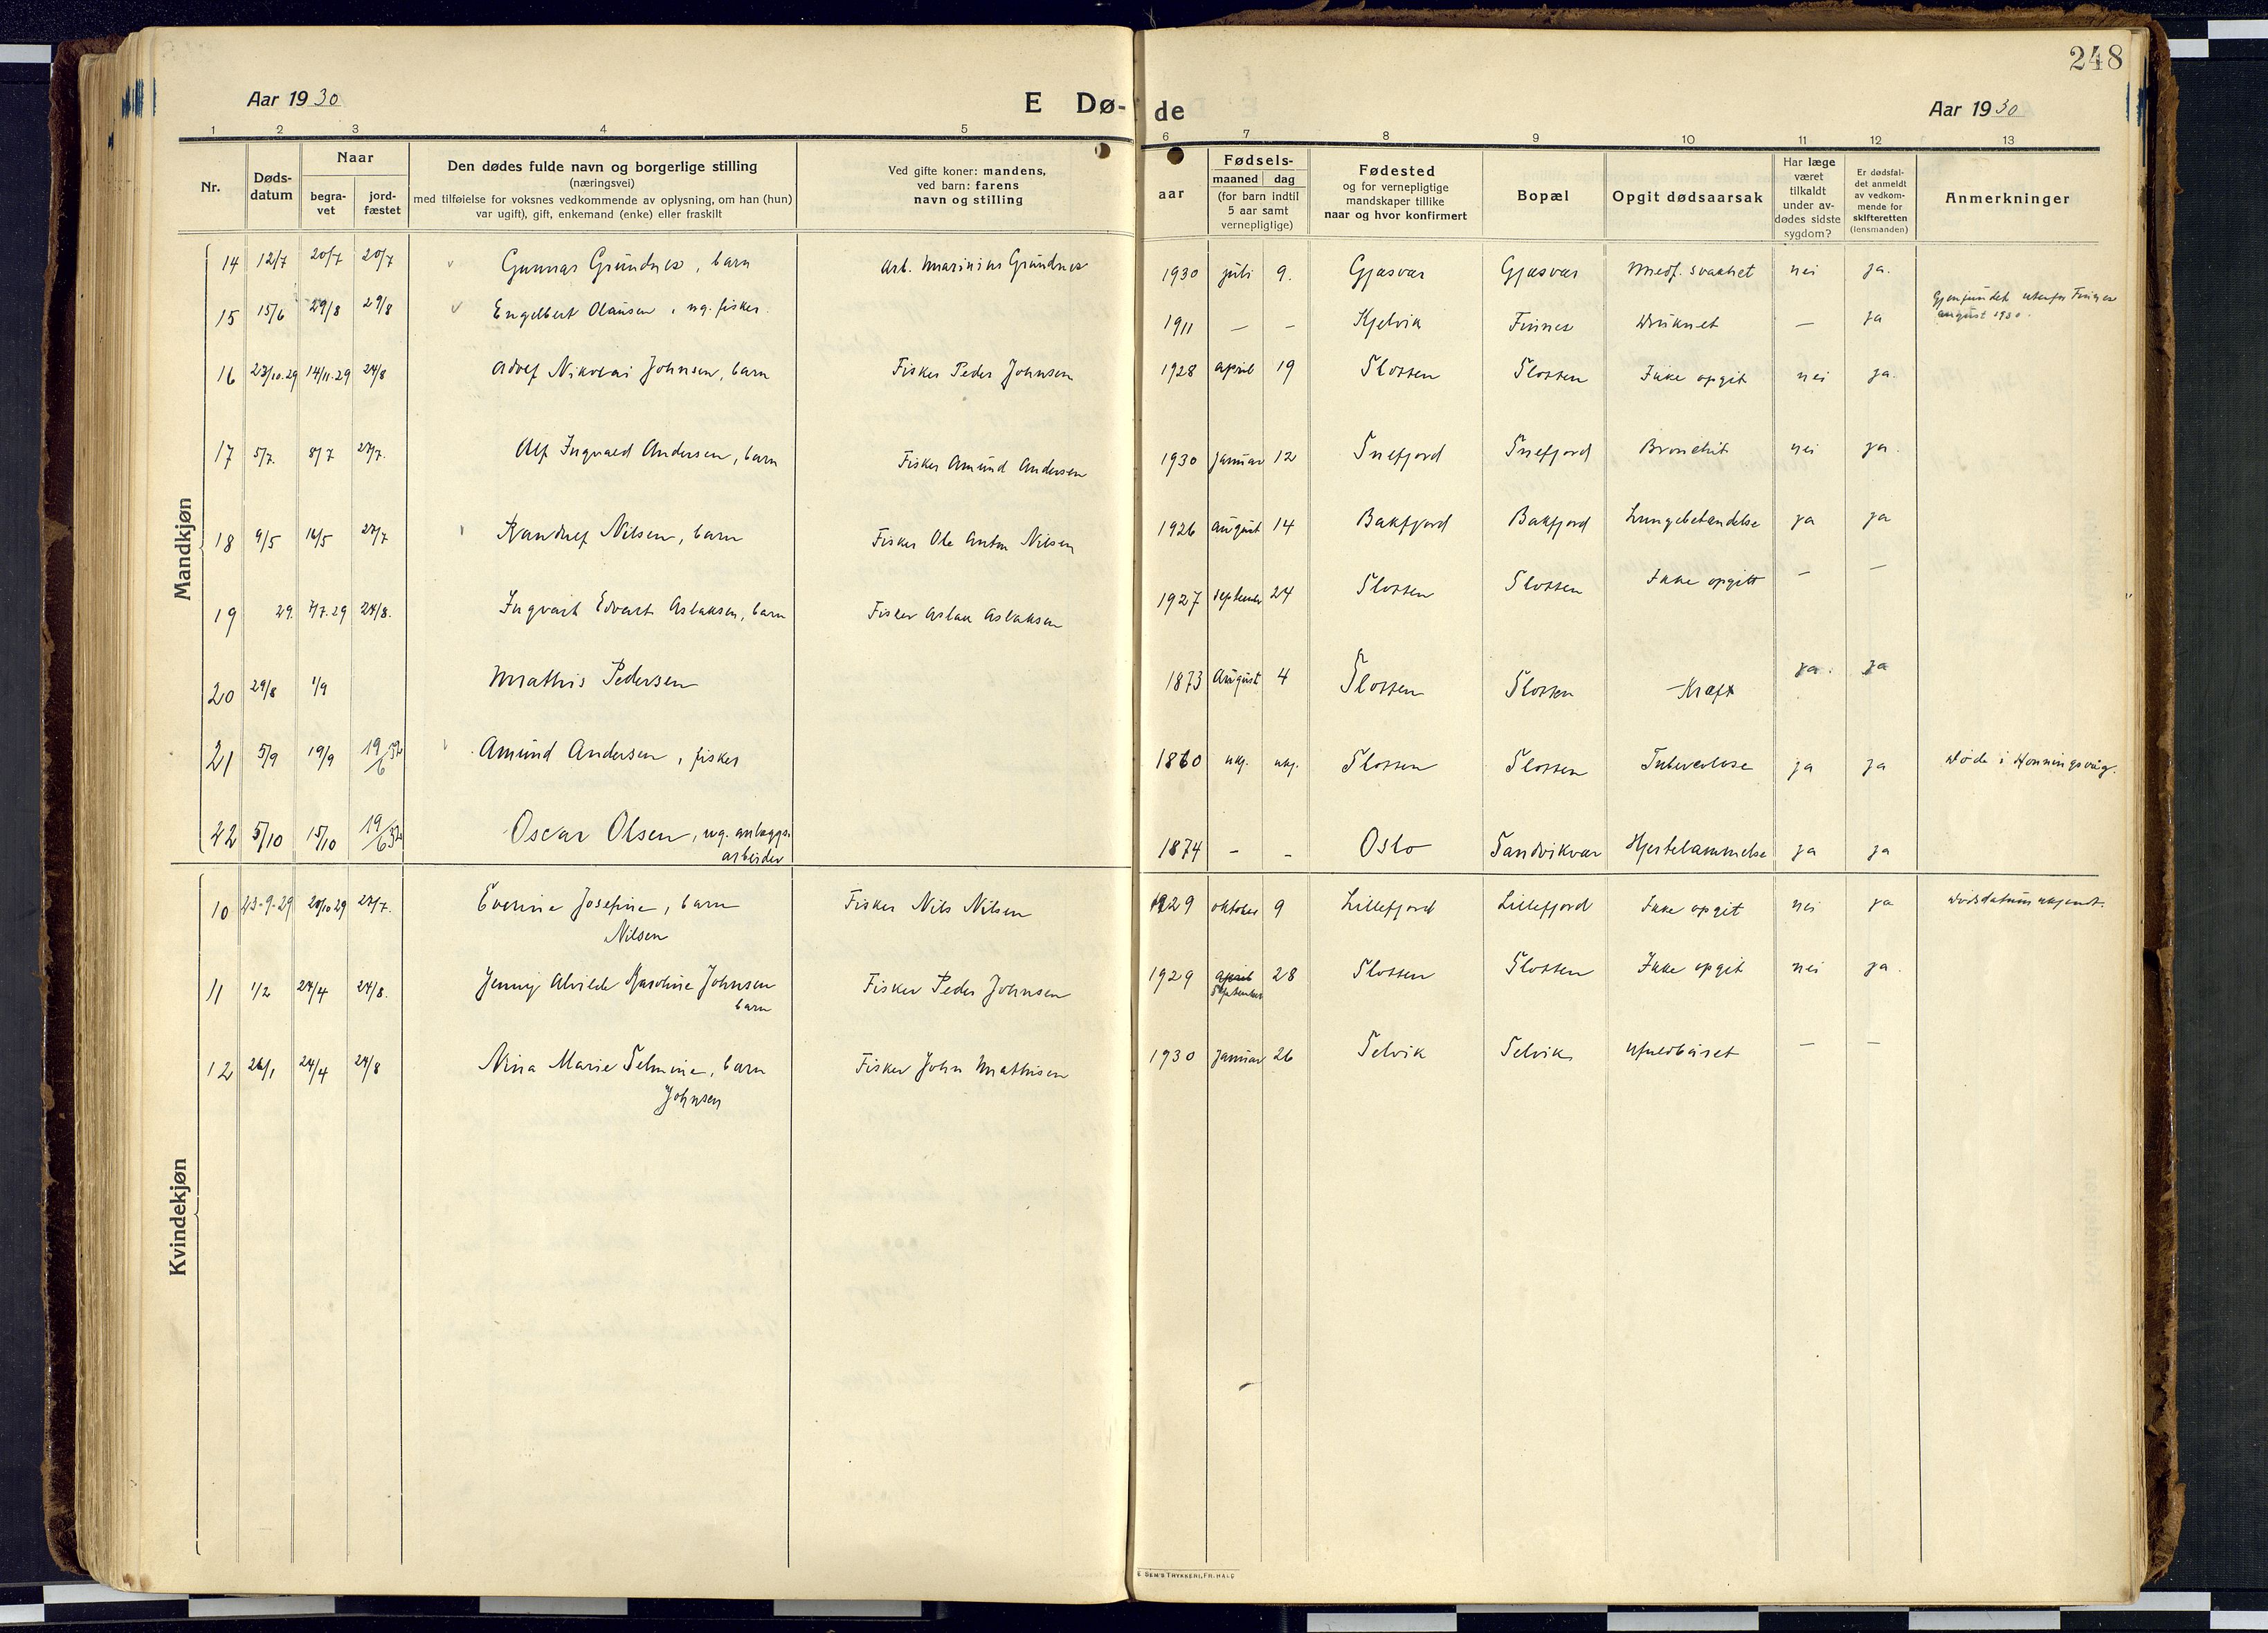 248
Aar 1930
E Dø-
de
Aar 1930
1 2 3 4 5 6 7 8 9 10 11 12 13
Nr.
Døds-
datum
Naar
begra-
vet
jord-
fæstet
Den dødes fulde navn og borgerlige stilling
(næringsvei)
med tilføielse for voksnes vedkommende av oplysning, om han (hun)
var ugift), gift, enkemand (enke) eller fraskilt
Ved gifte koner: mandens,
ved barn: farens
navn og stilling
aar
Fødsels-
maaned dag
(for barn indtil
5 aar samt
vernepligtige)
Fødested
og for vernepligtige
mandskaper tillike
naar og hvor konfirmert
Bopæl
Opgit dødsaarsak
Har læge
været
tilkaldt
under av-
dødes sidste
sygdom?
Er dødsfal-
det anmeldt
av vedkom-
mende for
skifteretten
(lensmanden)
Anmerkninger
Mandkjøn
14 12/7 20/7 20/7 Gunnar Grundnes, barn Arb. Marinius Grundnes 1930 juli 9. Gjæsvær Gjæsvær Medf. svakhet nei ja.
15 15/6 29/8 29/8 Engelbert Olausen, ug. fisker. 1911 — — Kjelvik Finnes Druknet — ja Gjenfundet utenfor
august 1930.
16 23/10.29 14/11.29 24/8 Adolf Nikolai Johnsen, barn Fisker Peder Johnsen 1928 april 19 Slotten Slotten Ikke opgit nei ja.
17 5/7. 8/7 27/7. Alf Ingvald Andersen, barn Fisker Amund Andersen 1930 januar 12 Snefjord Snefjord Bronchit nei ja.
18 9/5 16/5 27/7 Randulf Nilsen, barn Fisker Ole Anton Nilsen 1926 august 14 Bakfjord Bakfjord Lungebetendelse ja ja
19 29. 7/7.29 24/8. Ingvart Edvart Aslaksen, barn Fisker Aslak Aslaksen 1927 september 24 Slotten Slotten Ikke opgitt — —
20 29/8 1/9 Mathis Pedersen 1873 August 4 Slotten Slotten Kræft ja. ja
21 5/9 19/9 19/6 32 Amund Andersen, fisker 1860 ukj. ukj. Slotten Slotten Tuberculose ja ja Døde i Honningsvåg.
22 5/10 15/10 19/6 32 Oscar Olsen, ug. anlæggs.
arbeider 1874 – – Oslo Sandvikvær Hjertelammelse ja ja
Kvindekjøn
10 23-9-29 20/10 29 27/7. Everine Josefine, barn
Nilsen Fisker Nils Nilsen 1929 oktober 9 Lillefjord Lillefjord Ikke opgit nei ja Dødsdatum ukjendt.
11 1/2 24/4 24/8. Jenny Alvilde Karoline Johnsen
barn Fisker Peder Johnsen 1929 april
September 28 Slotten Slotten Ikke opgit nei ja.
12 26/1 24/4 24/8 Nina Marie Selmine, barn
Johnsen Fisker John Mathisen 1930 januar 26 Selvik Selvik Ufuldbåret — —
E. SEM'S TRYKKERI, FR.HALD